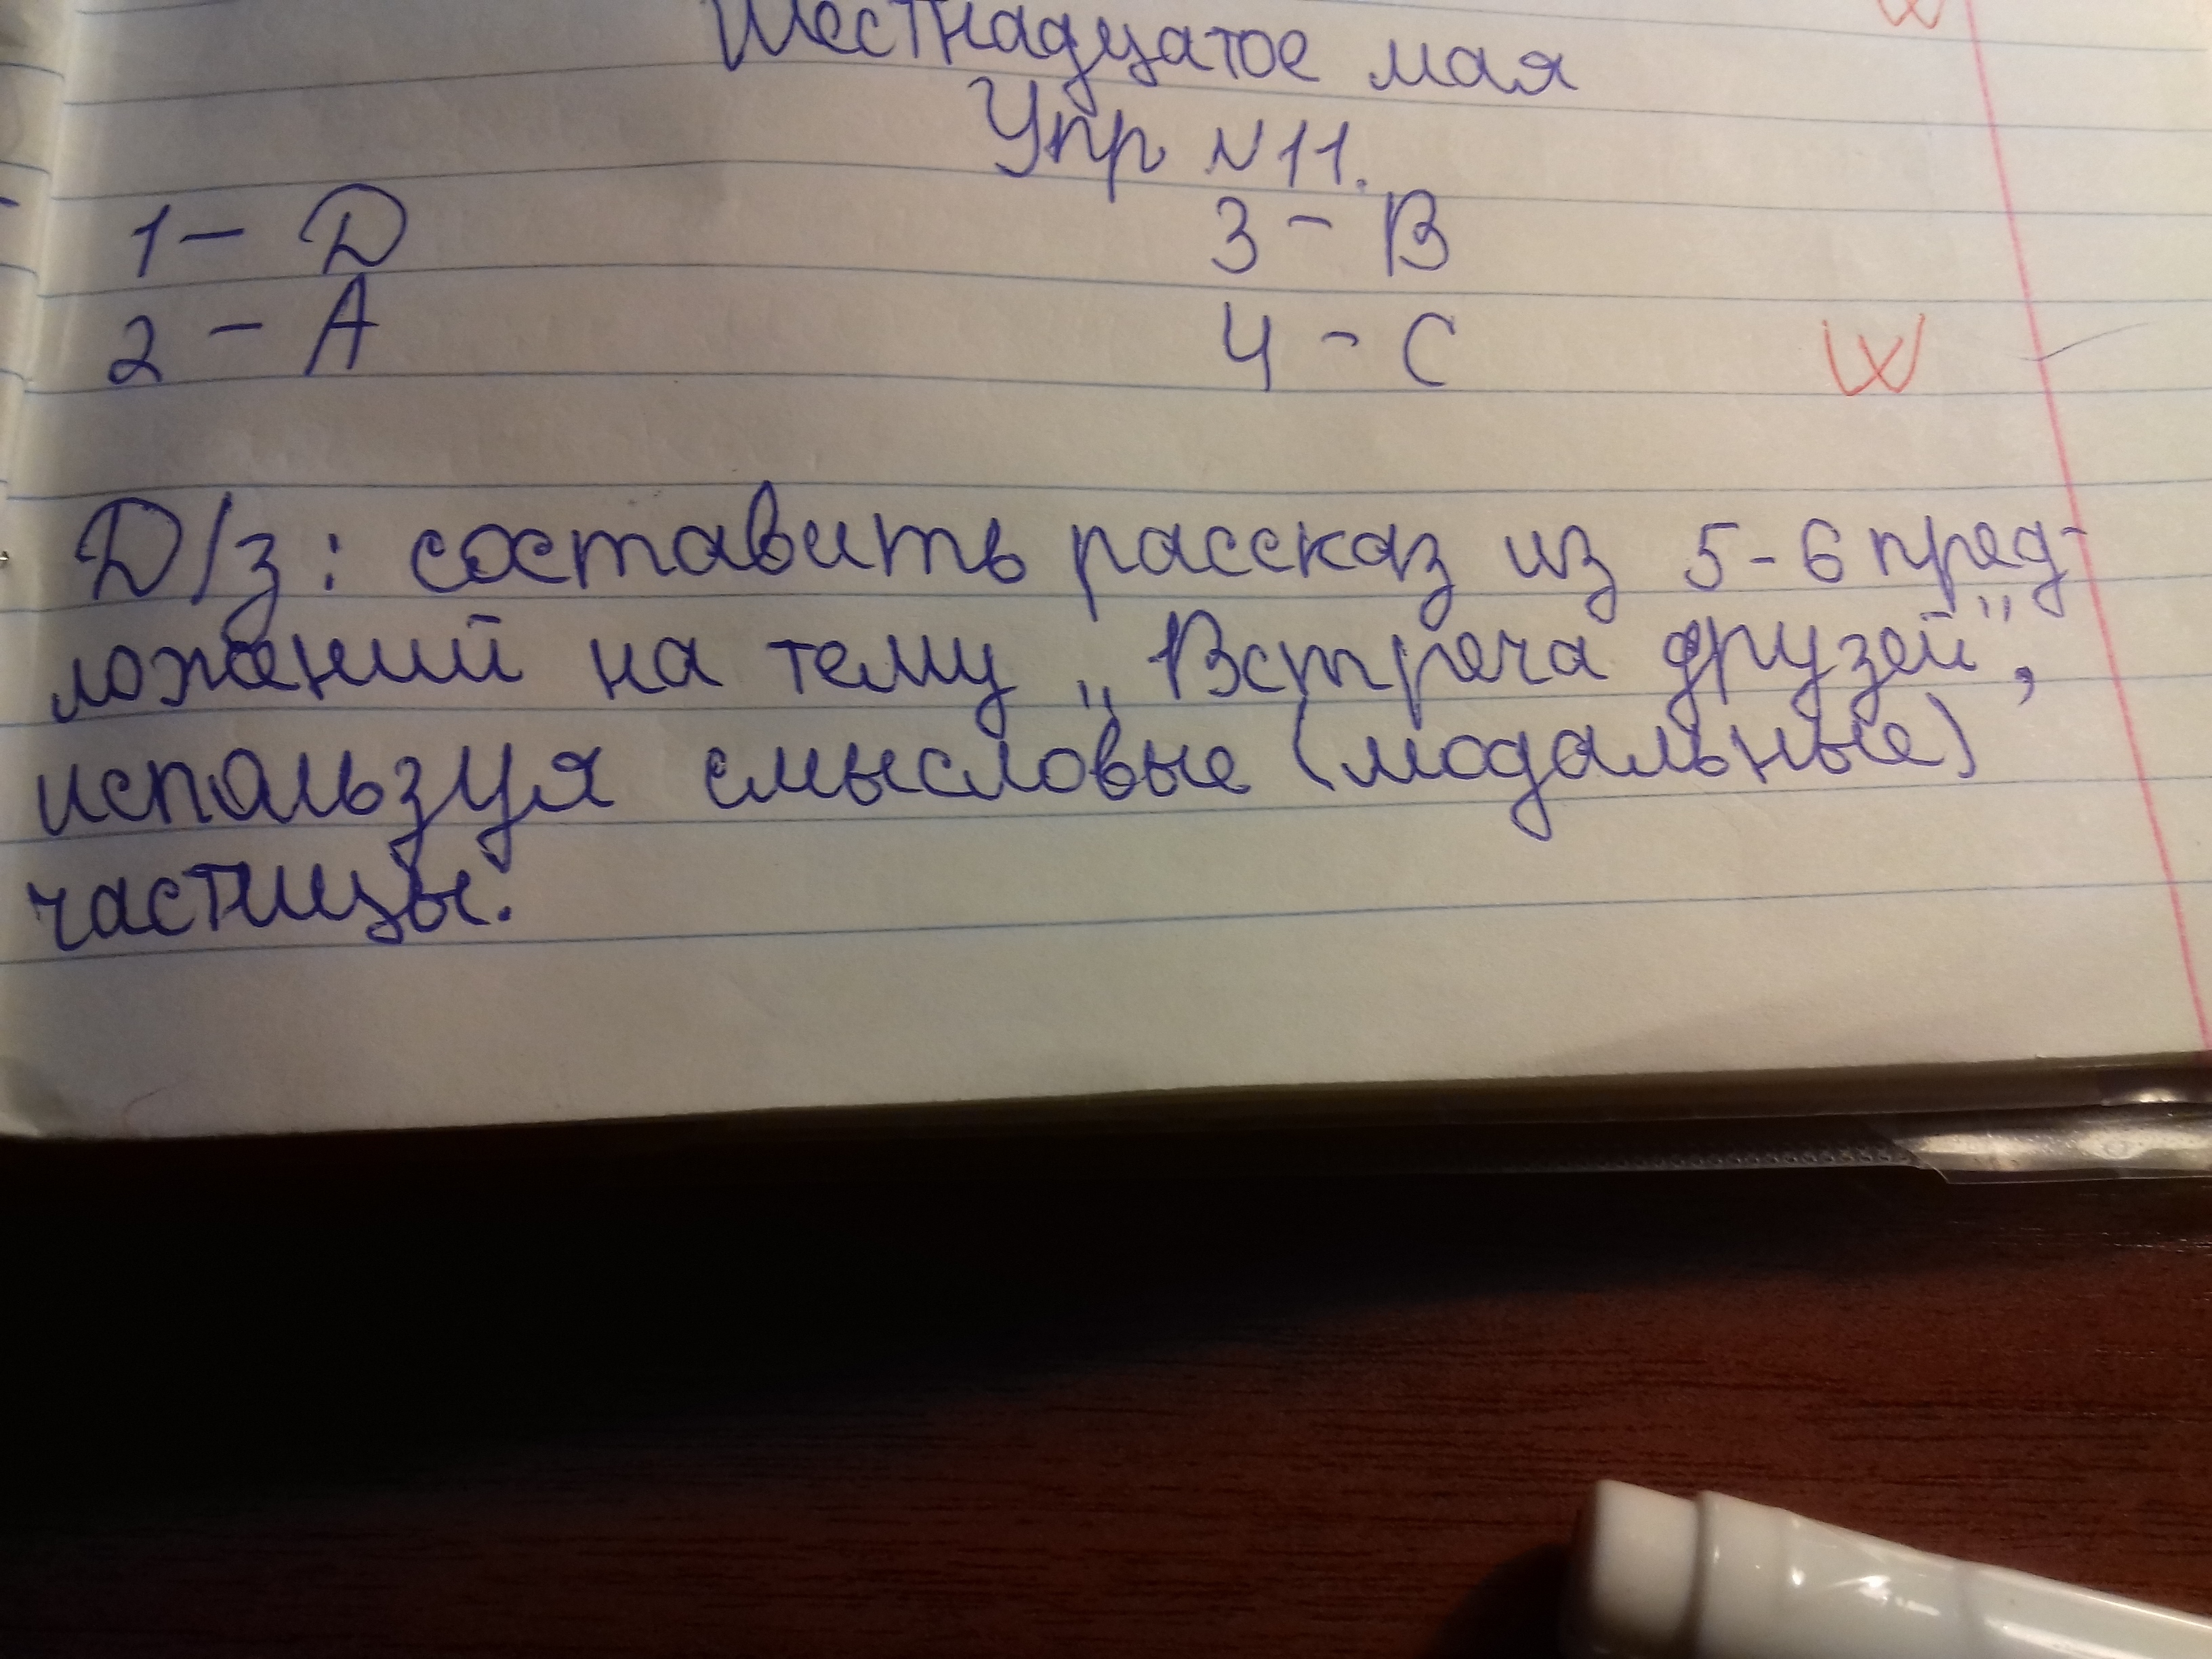 Шестнадцатое мая
Упр №11.
1 - D 3 - B
2 - A 4 - C
Д/з: составить рассказ из 5-6 пред-
ложений на тему „Встреча друзей",
используя смысловые (модальные)
частицы.